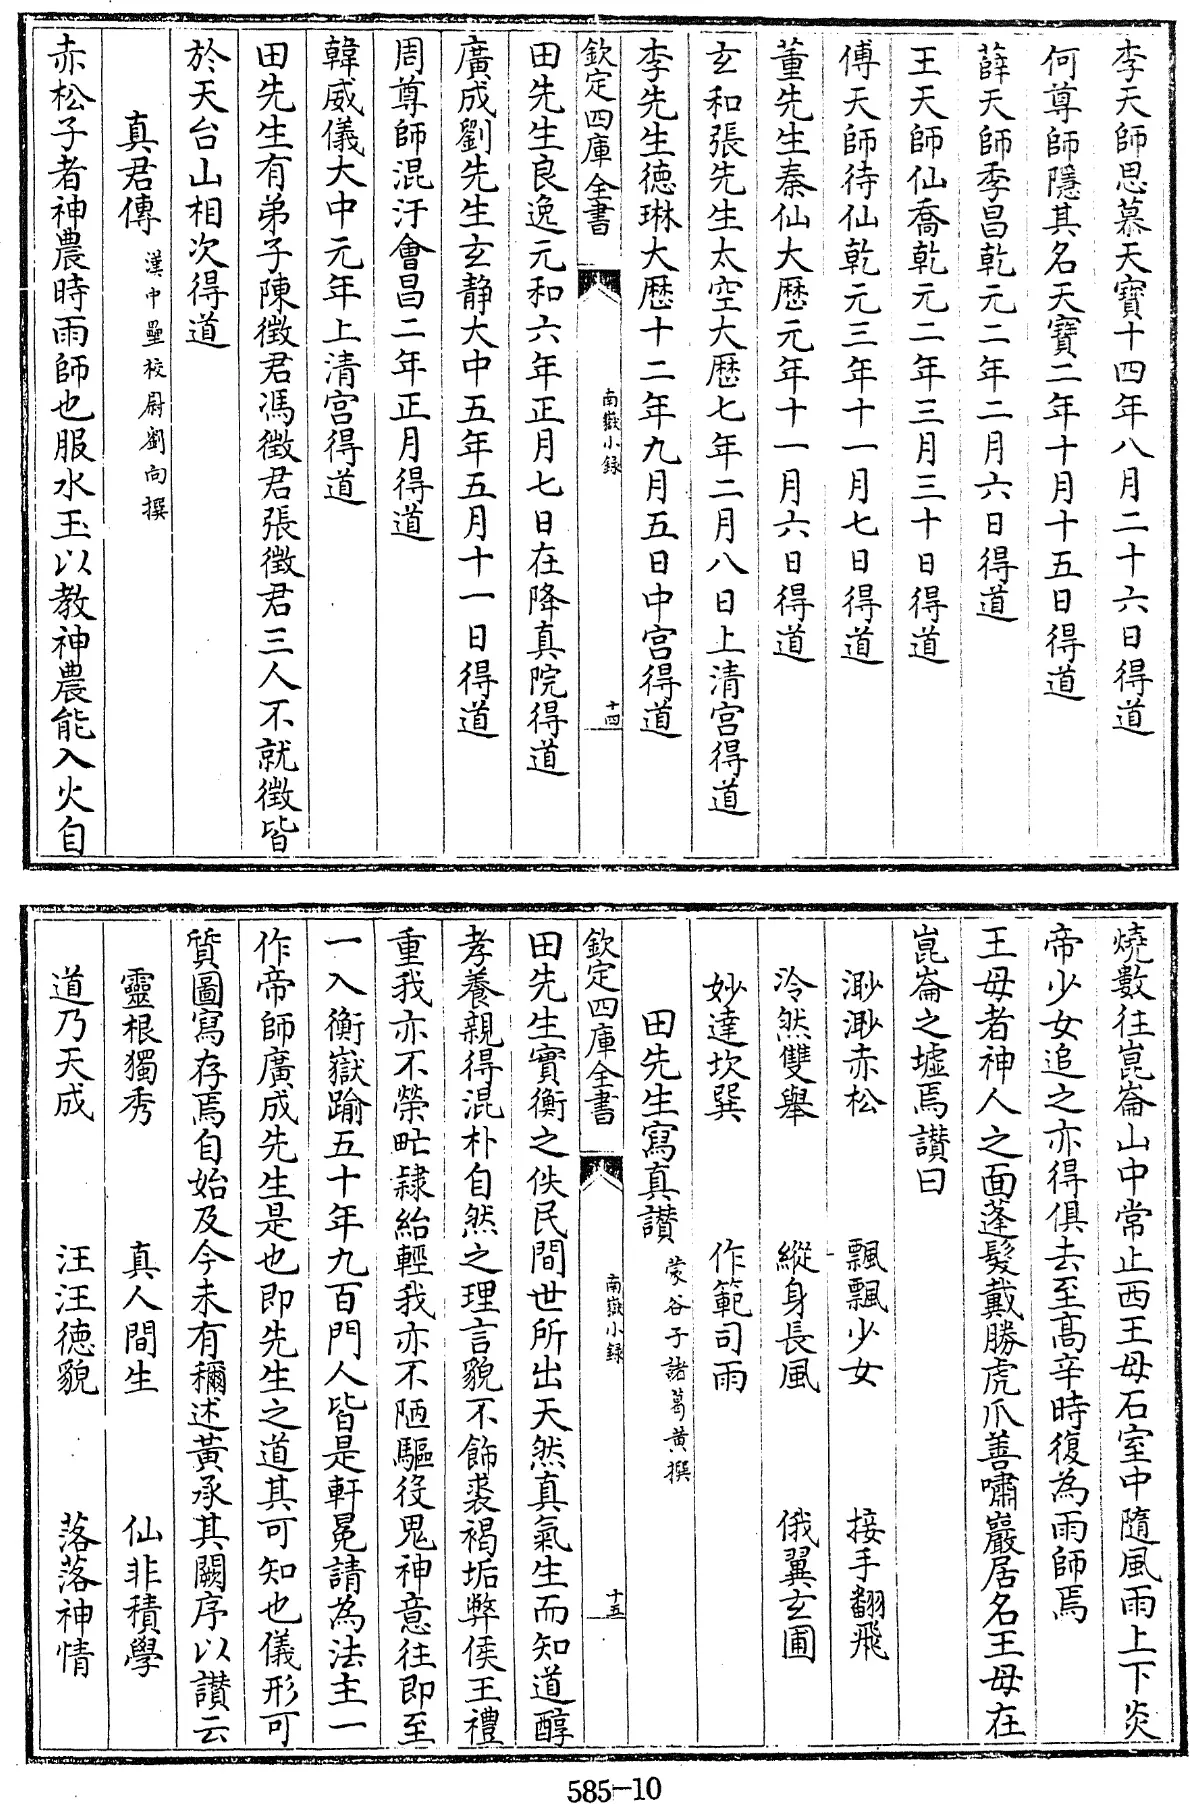 李天師思慕天寶十四年八月二十六日得道
何尊師隱其名天寶二年十月十五日得道
薛天師季昌乾元二年二月六日得道
王天師仙喬乾元二年三月三十日得道
傅天師待仙乾元三年十一月七日得道
董先生秦仙大厯元年十一月六日得道
玄和張先生太空大厯七年二月八日上清宫得道
李先生德琳大厯十二年九月五日中宫得道
欽定四庫全書 南嶽小録 十四
田先生良逸元和六年正月七日在降真院得道
廣成劉先生玄静大中五年五月十一日得道
周尊師混汙會昌二年正月得道
韓威儀大中元年上清宫得道
田先生有弟子陳徵君馮徵君張徵君三人不就徵皆
於天台山相次得道
真君傳 漢中壘校尉劉向撰
赤松子者神農時雨師也服水玉以教神農能入火自
燒數往崑崙山中常止西王母石室中隨風雨上下炎
帝少女追之亦得俱去至高辛時復為雨師焉
王母者神人之面蓬髮戴勝虎爪善嘯巖居名王母在
崑崙之墟焉讃曰
渺渺赤松 飄飄少女 接手翻飛
泠然雙舉 縱身長風 俄翼玄圃
妙達坎巽 作範司雨
田先生寫真讃 蒙谷子諸葛黄撰
欽定四庫全書 南嶽小録 十五
田先生實衡之佚民間世所出天然真氣生而知道醇
孝養親得混朴自然之理言貌不飾裘褐垢弊侯王禮
重我亦不榮甿隷紿輕我亦不陋驅役鬼神意往即至
一入衡嶽踰五十年九百門人皆是軒冕請為法主一
作帝師廣成先生是也即先生之道其可知也儀形可
質圖寫存焉自始及今未有稱述黄承其闕序以讃云
靈根獨秀 真人間生 仙非積學
道乃天成 汪汪德貌 落落神情
585-10